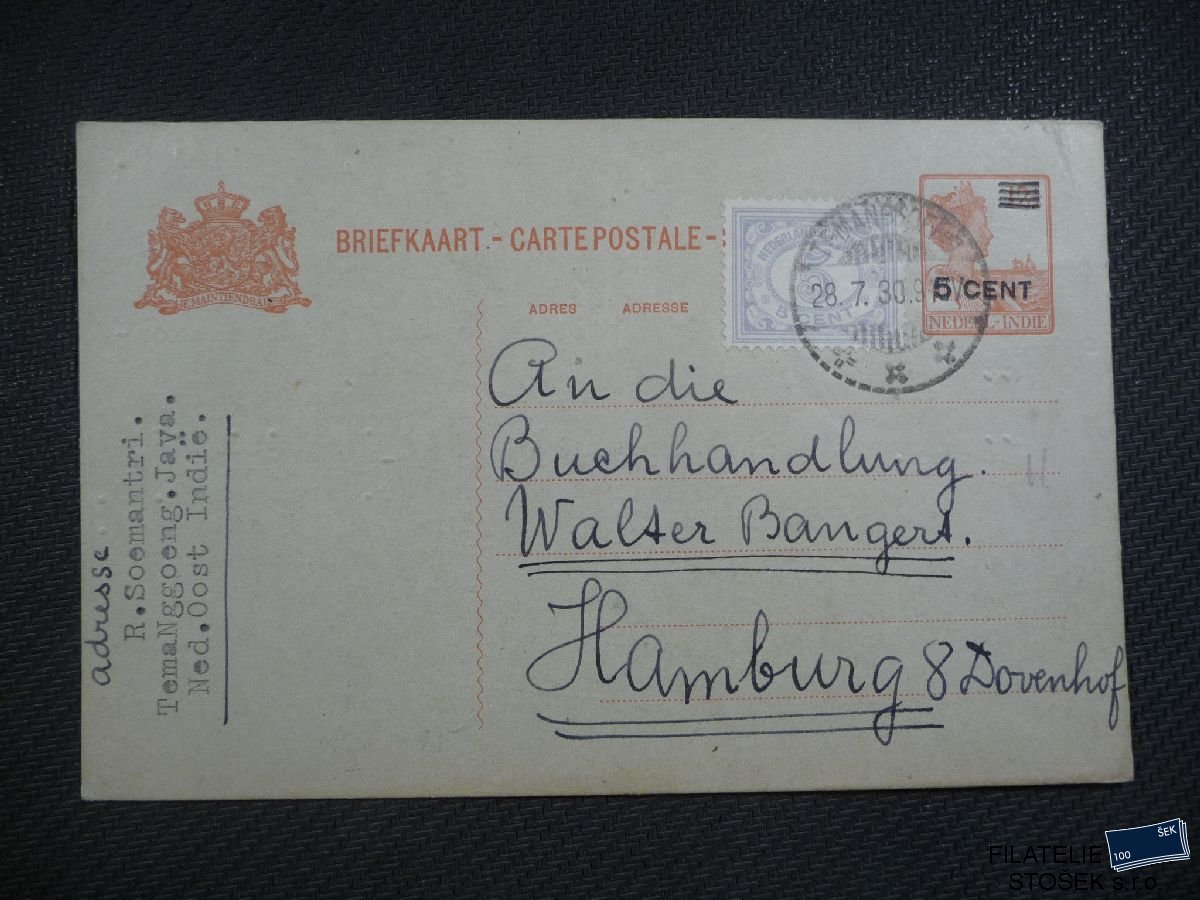 BRIEFKAART.-CARTE POSTALE-
ADRES ADRESSE
JE MAINTIENDRAI
NEDERLANDSCH
5 CENT
28.7.30.9
5 CENT
NEDERL-INDIE
An die
Buchhandlung.
Walter Bangert.
Hamburg 8 Dovenhof
adresse
R.Soemantri.
TemaNggoeng.Java.
Ned.Oost Indië.
100 ŠEK
FILATELIE
STOŠEK s.r.o.